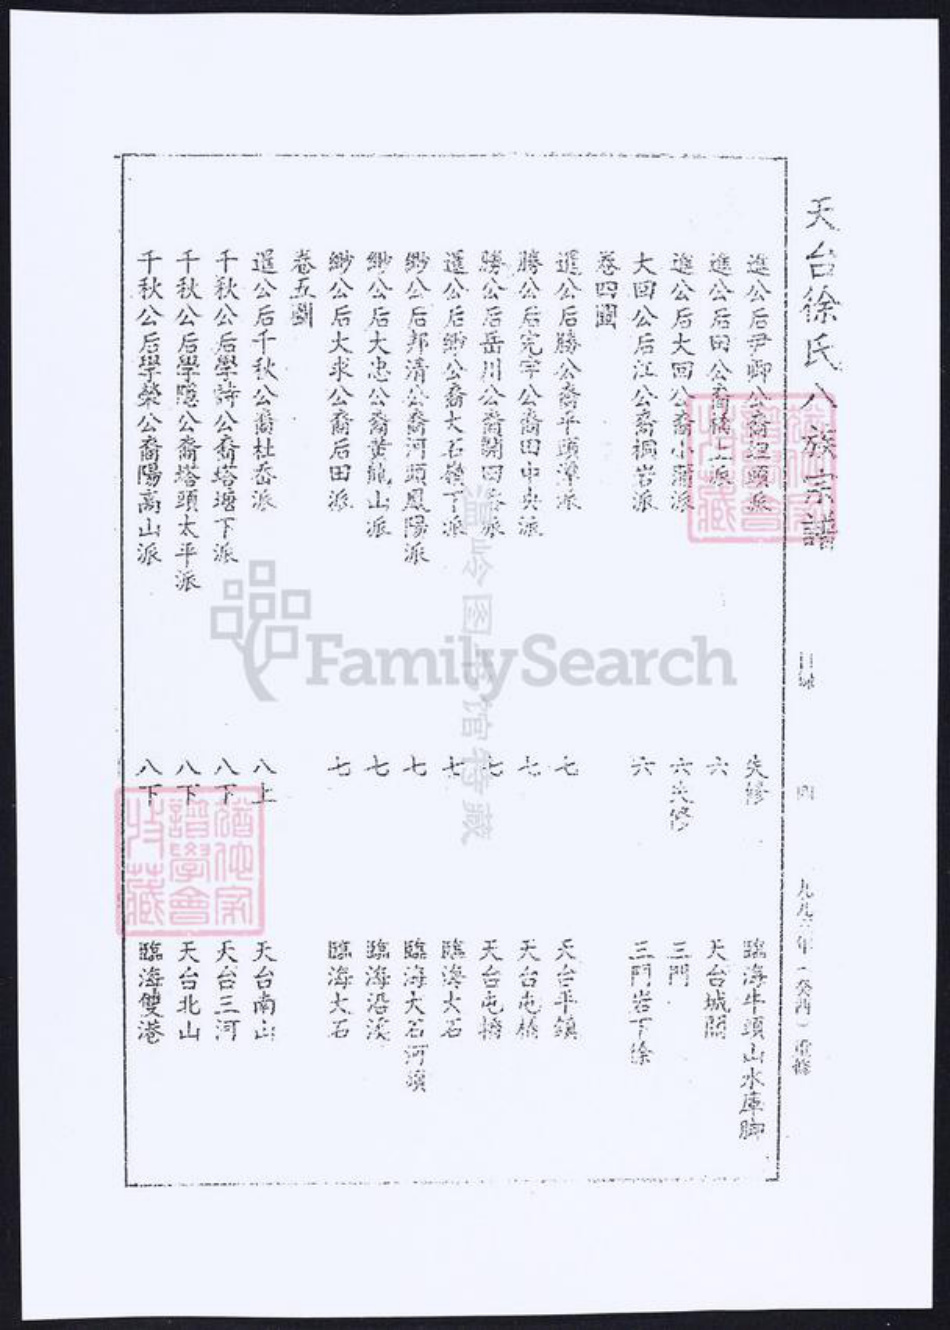 天台徐氏八族宗譜
目錄
四
九九三年（癸酉）重修
進公后尹卿公裔埋頭派 失修 臨海牛頭山水庫脚
進公后田公裔橋上派 六 天台城關
進公后大回公裔小蒲派 六失修 三門
大回公后江公裔桐岩派 六 三門岩下徐
卷四圖
暹公后勝公裔平頭潭派 七 天台平鎮
勝公后完宇公裔田中央派 七 天台屯橋
勝公后岳川公裔派 七 天台屯橋
暹公后緲公裔大石嶺下派 七 臨海大石
緲公后邦清公裔河頭鳳陽派 七 臨海大石河頭
緲公后大忠公裔黃龍山派 七 臨海沿溪
緲公后大求公裔后田派 七 臨海大石
卷五圖
暹公后千秋公裔杜岙派 八上 天台南山
千秋公后學詩公裔塔塘下派 八下 天台三河
千秋公后學隱公裔塔頭太平派 八下 天台北山
千秋公后學榮公裔陽高山派 八下 臨海雙港
FamilySearch
温岭图书馆特藏
譜學會
收藏